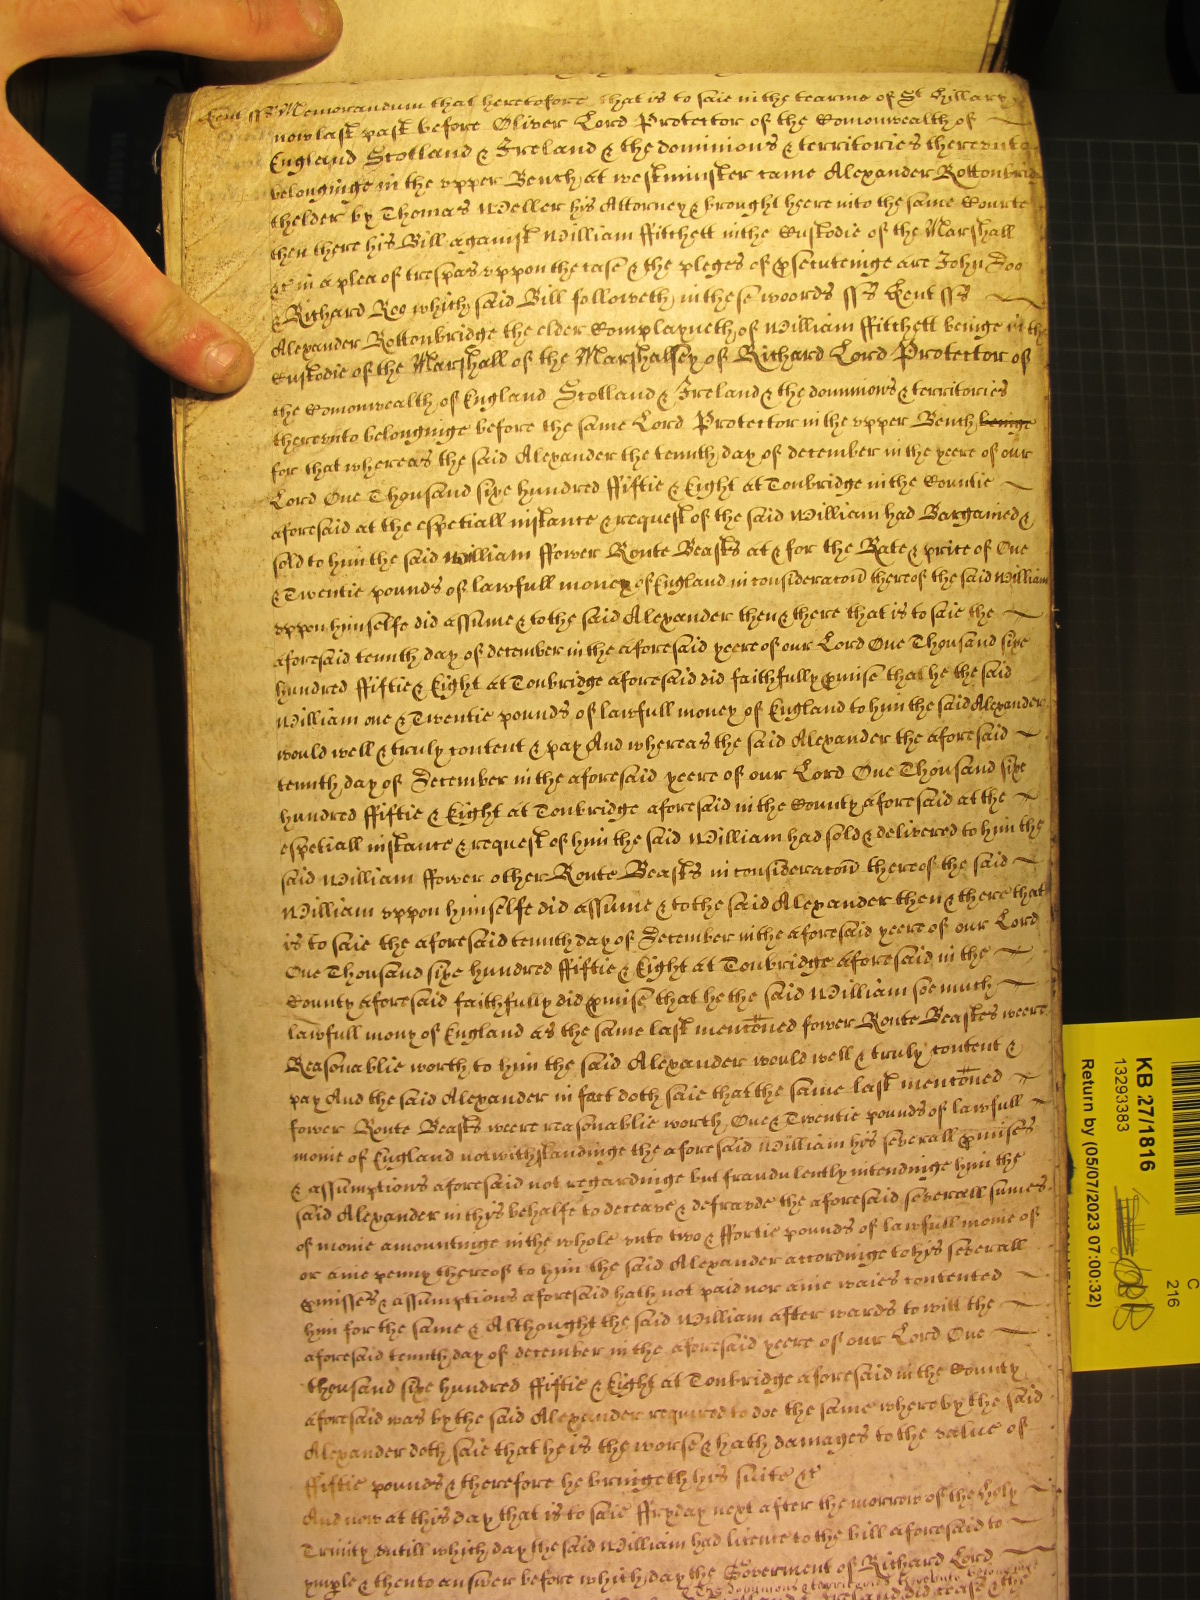 Kent ss Memorandum that heretofore that is to saie in the tearme of St Hillary
now last past before Oliver Lord Protector of the Comonwealth of
England Scotland & Ireland & the dominions & territories therevnto
belonginge in the vpper Bench at westminster came Alexander Rottonbridge
thelder by Thomas Weller his Attorney & brought heere into the same Courte
then there his Bill against William Fitchett in the Custodie of the Marshall
&c in a plea of trespas vppon the case & the pleges of psecuteinge are John Doo
& Richard Roo which said Bill followeth in these woords ss Kent ss
Alexander Rottonbridge the elder Complayneth of William ffitchett beinge in the
Custodie of the Marshall of the Marshallsey of Richard Lord Protector of
the Comonwealth of England Scotland & Ireland & the dominions & territories
therevnto belonginge before the same Lord Protector in the vpper Bench beinge
for that whereas the said Alexander the tennth day of december in the yeere of our
Lord One Thousand sixe hundred ffiftie & Eight at Tonbridge in the Countie
aforesaid at the espetiall instance & request of the said William had Bargained &
sold to him the said William ffower Ronte Beasts at & for the Rate & price of One
& Twentie pounds of lawfull money of England in consideracon thereof the said William
vppon himselfe did assume & to the said Alexander then & there that is to saie the
aforesaid tennth day of december in the aforesaid yeere of our Lord One Thousand sixe
hundred ffiftie & Eight at Tonbridge aforesaid did faithfully pmise that he the said
William one & Twentie pounds of lawfull money of England to him the said Alexander
would well & truly content & pay And whereas the said Alexander the aforesaid
tennth day of December in the aforesaid yeere of our Lord One Thousand sixe
hundred ffiftie & Eight at Tonbridge aforesaid in the County aforesaid at the
espetiall instance & request of him the said William had sold & delivered to him the
said William ffower other Ronte Beasts in consideracon thereof the said
William vppon himselfe did assume & to the said Alexander then & there that
is to saie the aforesaid tennth day of December in the aforesaid yeere of our Lord
One Thousand sixe hundred ffiftie & Eight at Tonbridge aforesaid in the
County aforesaid faithfully did pmise that he the said William soe much
lawfull mony of England as the same last mencōned fower Ronte Beastes weere
Reasonablie worth to him the said Alexander would well & truly content &
pay And the said Alexander in fact doth saie that the same last mencōned
fower Ronte Beasts weere reasonablie worth One & Twentie pounds of lawfull
monie of England notwithstandinge the aforesaid William his severall pmises
& assumptions aforesaid not regardinge but fraudulently intendinge him the
said Alexander in thys behalfe to deceave & defraude the aforesaid severall sumes
of monie amountinge in the whole vnto two & ffortie pounds of lawfull monie of
or anie penny thereof to him the said Alexander accordinge to his severall
pmisses & assumptions aforesaid hath not paid nor anie waies contented
him for the same & Althought the said William after wards to will the
aforesaid tennth day of december in the aforesaid yeere of our Lord One
thousand sixe hundred ffiftie & Eight at Tonbridge aforesaid in the County
aforesaid was by the said Alexander required to doe the same whereby the said
Alexander doth saie that he is the worse & hath damages to the value of
ffiftie pounds & therefore he bringeth hys suite &c
And now at this day that is to saie ffryday next after the morrow of the holy
Trinity vntill which day the said William had licence to the bill aforesaid to
imple & then to answer before which day the Goverment of Richard Lord
& the dominions & territories therevnto belonging
Ireland did cease & the
KB 27/1816
13293383
Return by (05/07/2023 07:00:32)
C
216